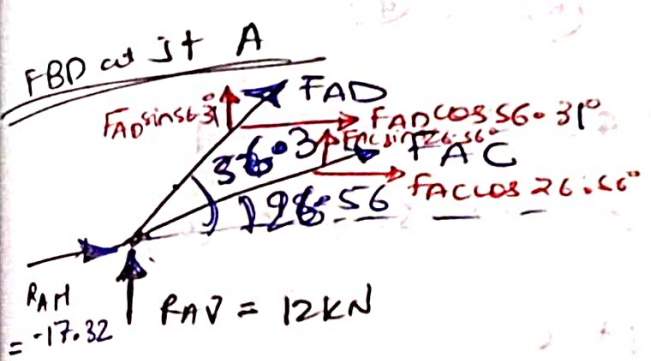 FBD at jt A
FAD
FADsin56.31°
FADcos56.31°
FACsin26.56°
56.31
FAC
FACcos26.56°
26.56
RAH
= -17.32
RAV = 12KN